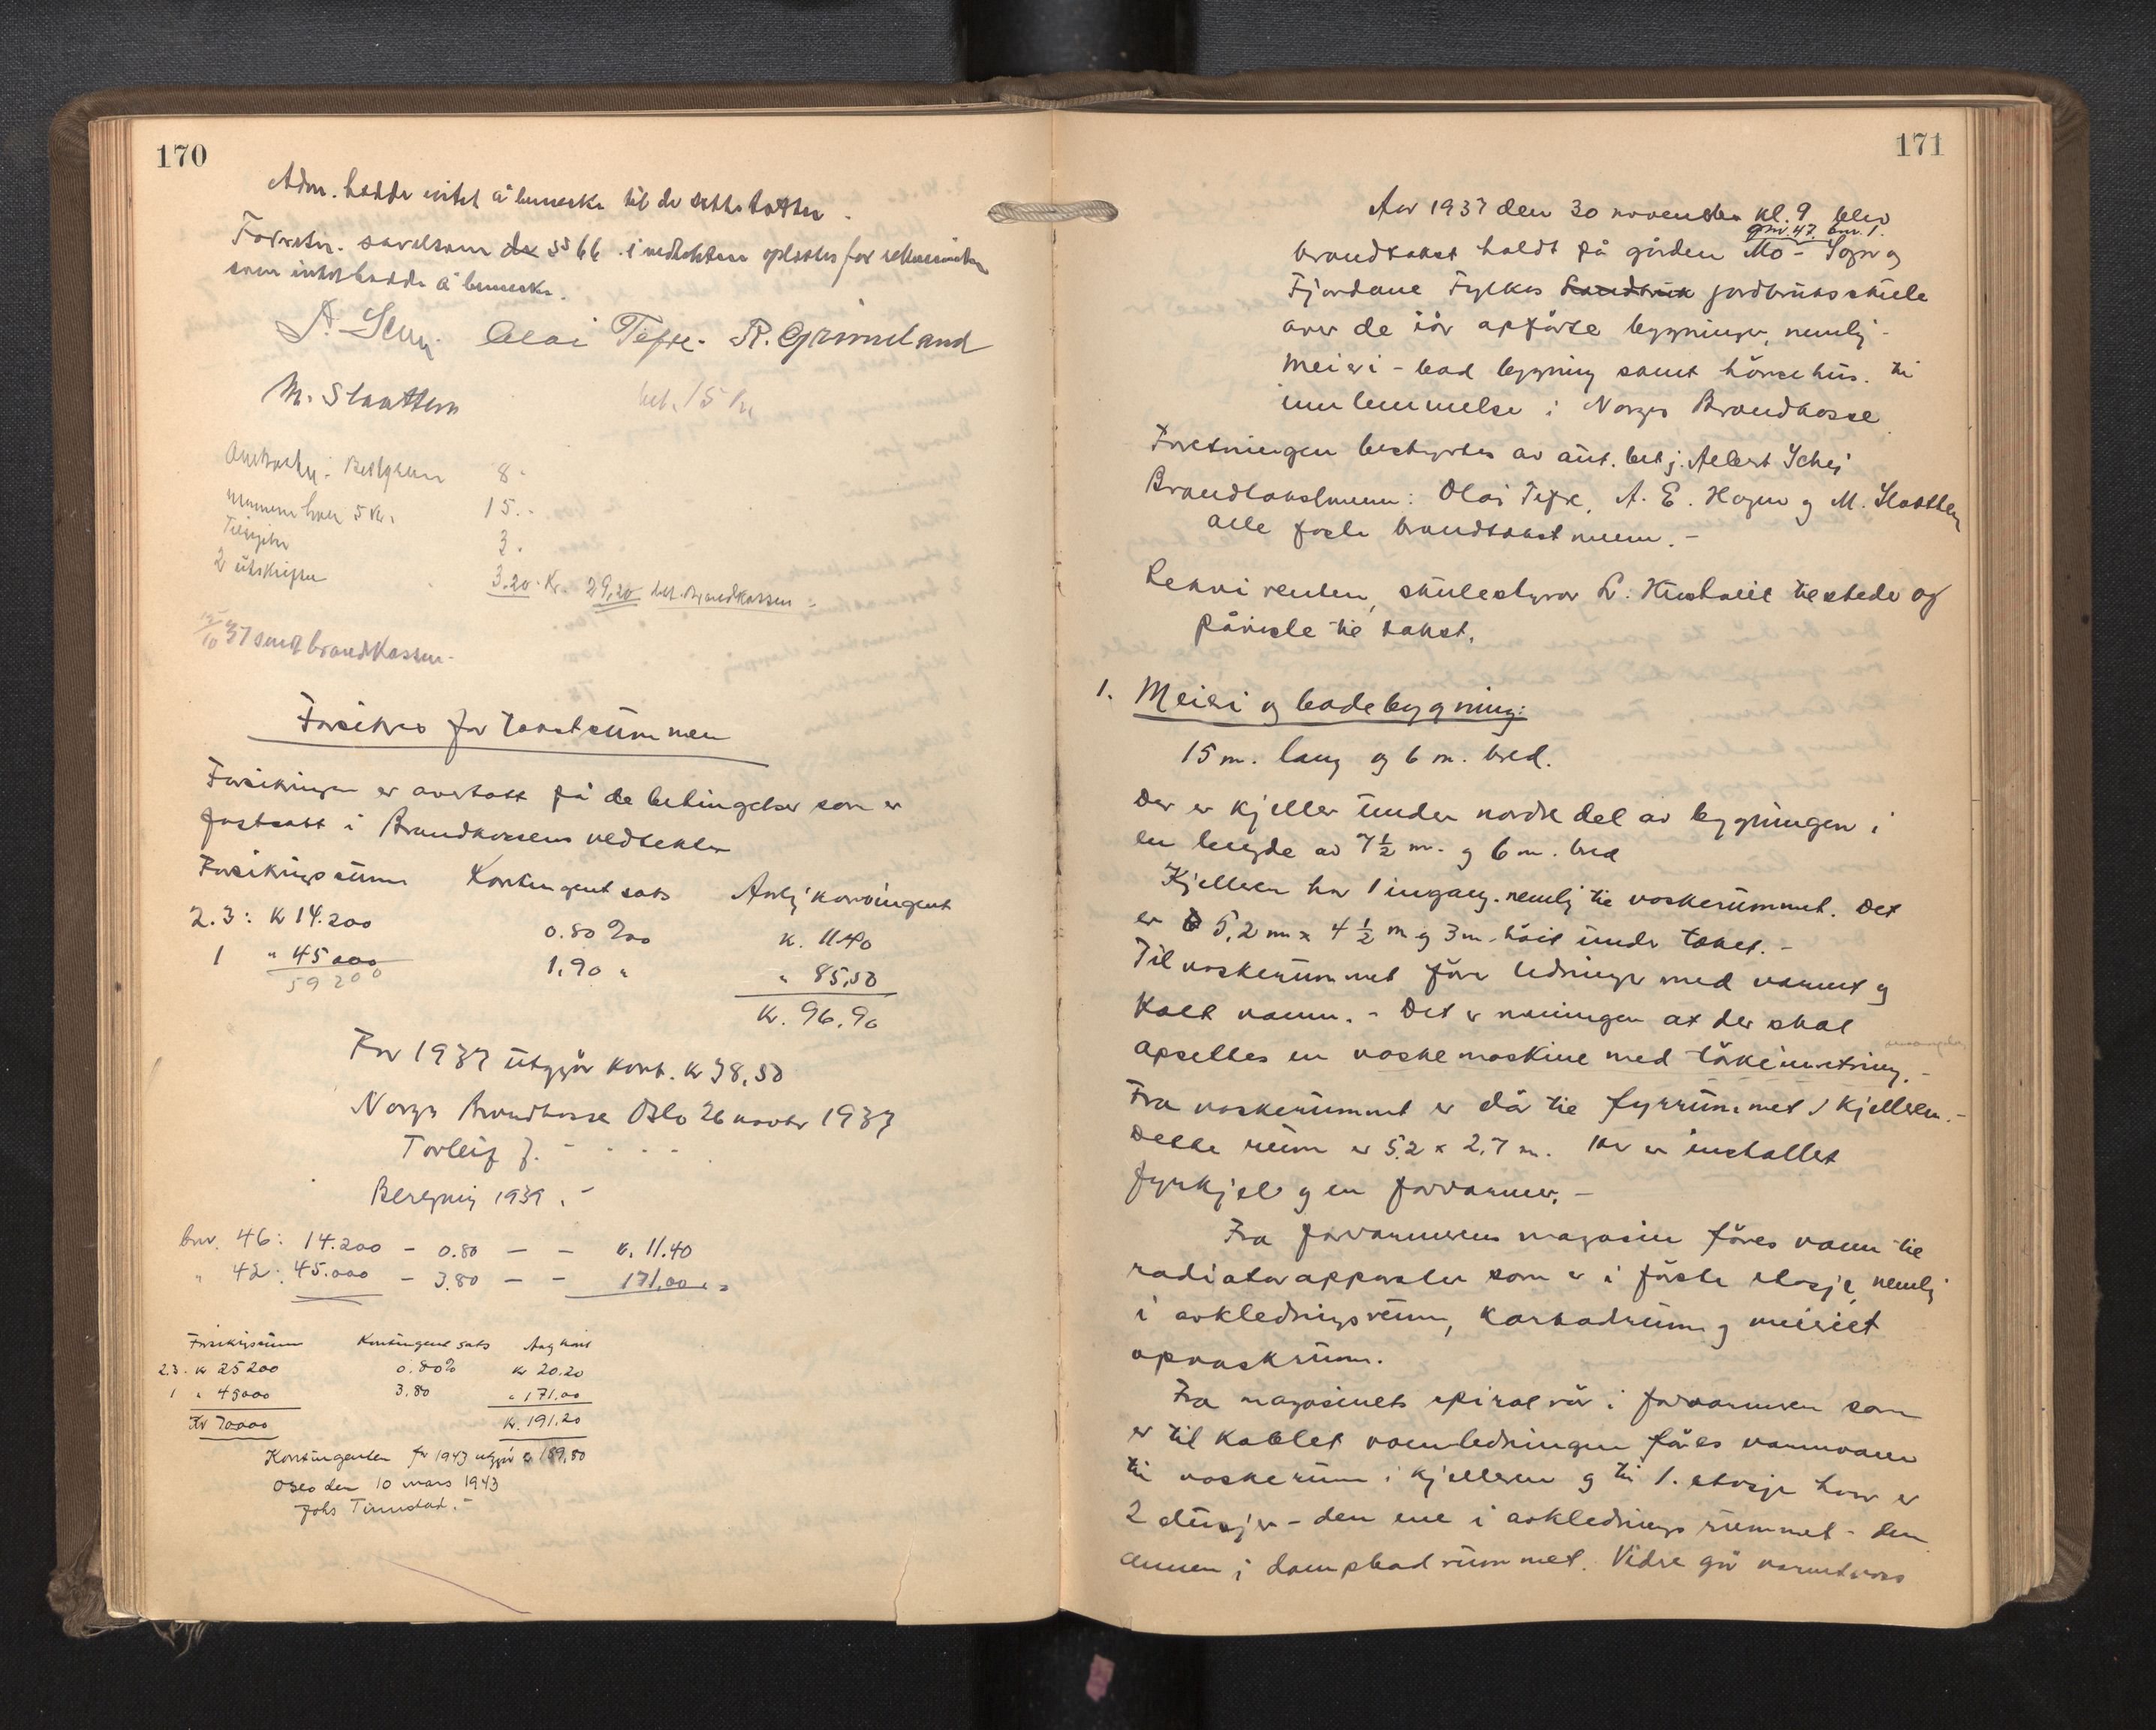 170
Adm. hadde intet å bemerke til de satte takster.
Forretn. såvelsom de §§ 66 i vedtektene oplestes for rekvirenten
som intet hadde å bemerke.
Olai Tefre. R. Grimeland
M. Slaatten
bet. 15 kr
8.
mennene hver 5 kr. 15.-
3.
2 utskrifter 3.20. Kr. 29,20 bet. Brandkassen
37 sendt brandkassen.
Forsikres for takstsummen
Forsikringen er overtatt på de betingelser som er
fastsatt i Brandkassens vedtekter
Forsikringssum Kontingentsats Årlig kontingent
2.3: kr 14.200 0.80 ‰ kr. 11.40
1 " 45000 1.90 " " 85,50
59200 kr. 96,90
For 1937 utgjør kont. kr 38,50
Norges Brandkasse Oslo 26 novbr 1937
Torleif J. - - - -
Beregning 1939.-
bnr. 46: 14.200 - 0.80 - - kr. 11.40
" 42: 45.000 - 3.80 - - 171,00
Forsikringssum Kontingent sats Årlig kont
2.3. kr 25200 0.80% kr 20.20
1 " 45000 3.80 " 171.00
Kr 70000 kr. 191.20
Kontingenten for 1943 utgjør kr 189,50
Oslo den 10 mars 1943
Johs Tinnstad.-
171
Aar 1937 den 30 november kl. 9 blev
gnr. 47. bnr. 1.
brandtakst holdt på gården Mo - Sogn og
Fjordane Fylkes Landbruk jordbruksskule
over de iår opførte bygninger, nemlig
meieri - bad bygning samt hönsehus. til
innlemmelse i Norges Brandkasse
Forretningen bestyrtes av aut. betj. Albert Schei
Brandtakstmenn: Olai Tefre, A. E. Hagen og M. Slaatten
alle faste brandtakstmenn.-
Rekvirenten, skulestyrer L. Hustveit tilstede og
påviste til takst.
1. Meieri og badebygning:
15 m. lang og 6 m. bred.
Der er kjeller under nordre del av bygningen i
en lengde av 7½ m. og 6 m. bred
Kjelleren har 1 ingang. nemlig til vaskerummet. Det
er 5,2 m x 4½ m og 3 m. höit under taket.-
Til vaskerummet förer ledninger med varmt og
Kalt vann.- Det er meningen at der skal
opsettes en vaskemaskine med törkeinnretning.-
Fra vaskerummet er dör til fyrrummet i kjelleren.-
Dette rum er 5,2 x 2,7 m. Her er installert
fyrkjel og en forvarmer.-
Fra forvarmerens magasin föres vann til
radiatorapparater som er i förste etasje, nemlig
i avkledningsrum, karbadrum og meieriet
opvaskrum.
Fra magasinets spiralrör i forvarmeren som
er til koblet vannledningen föres varmvann
til vaskerum i kjelleren og til 1. etasje hvor er
2 dusjer - den ene i avkledningsrummet - den
annen i dampbadrummet. Videre går varmtvann